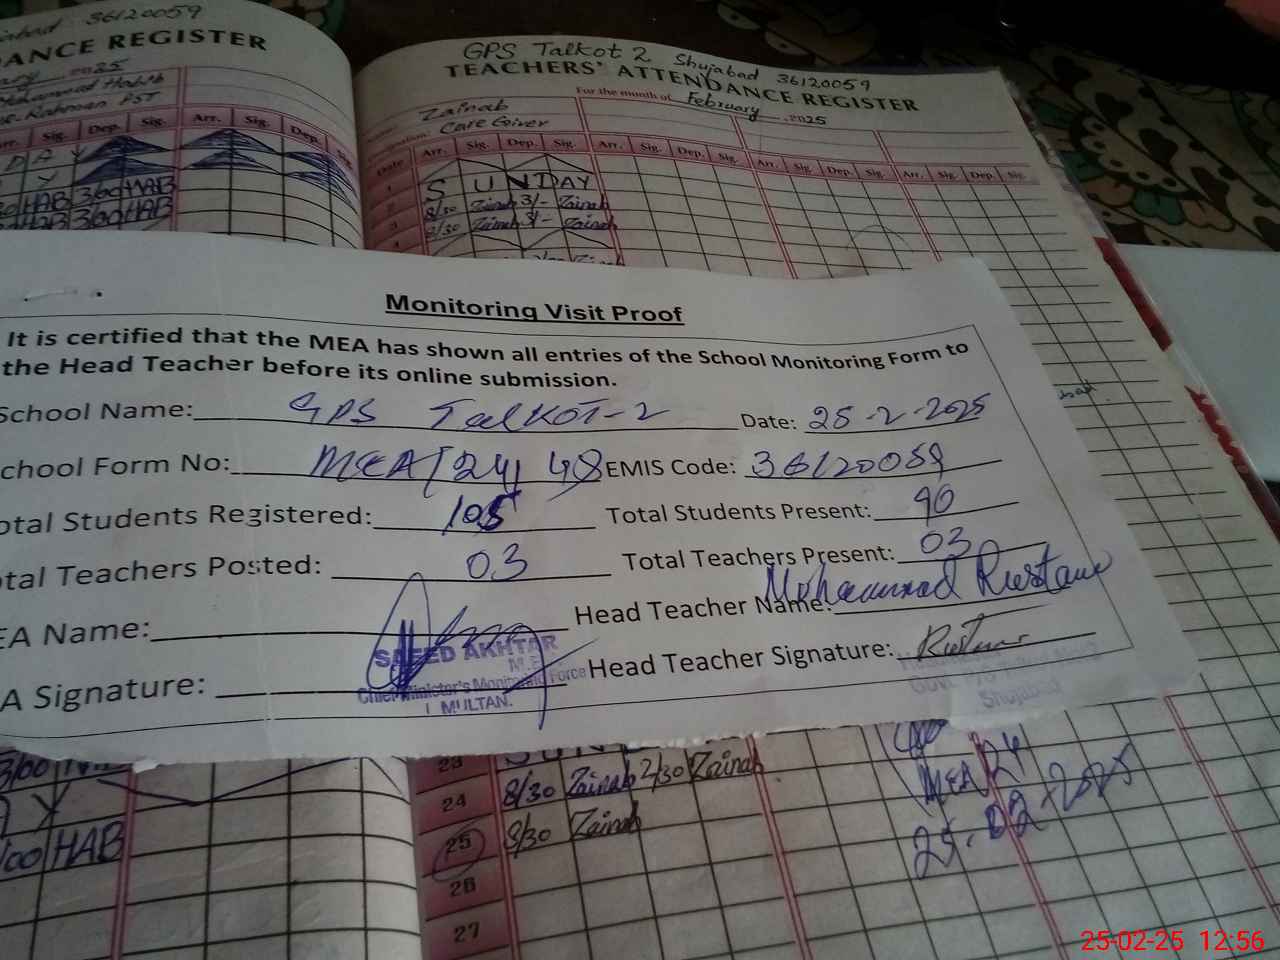 GPS Talkot 2 Shujabad 36120059
ANCE REGISTER
2025
TEACHERS' ATTENDANCE REGISTER
For the month of February 2025
Zainab
Care Giver
Sig. Dep. Sig. Arr. Sig. Dep.
Date Arr. Sig. Dep. Sig. Arr. Sig. Dep. Sig. Arr. Sig. Dep. Sig. Arr. Sig. Dep. Sig.
SUNDAY
8/30 Zainab 3/- Zainab
8/30 Zainab 3/- Zainab
HAB 3/00 HAB
HAB 3/00 HAB
Monitoring Visit Proof
It is certified that the MEA has shown all entries of the School Monitoring Form to
the Head Teacher before its online submission.
School Name: GPS Talkot-2 Date: 25-2-2025
chool Form No: MEA/24/48 EMIS Code: 36120059
otal Students Registered: 105 Total Students Present: 90
tal Teachers Posted: 03 Total Teachers Present: 03
EA Name: Head Teacher Name: Mohammad Rustam
A Signature: Head Teacher Signature: Rustam
SAEED AKHTAR
Chief Minister's Monitoring Force
MULTAN.
Shujabad
23 SUND
24 8/30 Zainab 2/30 Zainab
25 8/30 Zainab
26
27
HAB
MEA 24
25.02.2025
25-02-25 12:56